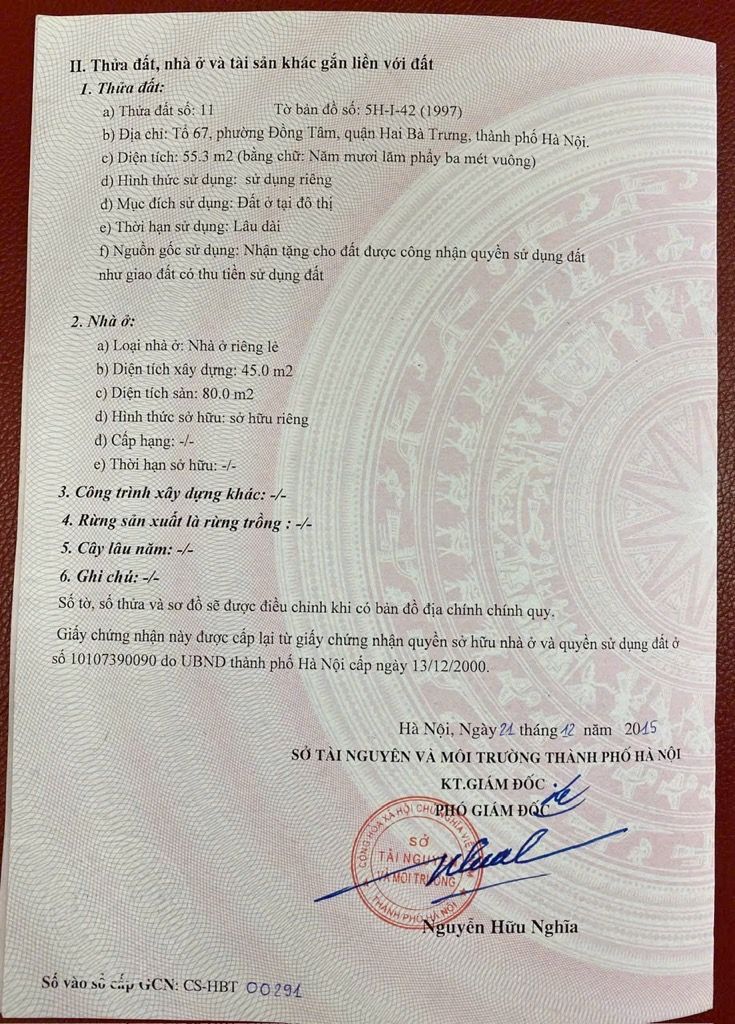 II. Thửa đất, nhà ở và tài sản khác gắn liền với đất
1. Thửa đất:
a) Thửa đất số: 11 Tờ bản đồ số: 5H-I-42 (1997)
b) Địa chỉ: Tổ 67, phường Đồng Tâm, quận Hai Bà Trưng, thành phố Hà Nội.
c) Diện tích: 55.3 m2 (bằng chữ: Năm mươi lăm phẩy ba mét vuông)
d) Hình thức sử dụng: sử dụng riêng
đ) Mục đích sử dụng: Đất ở tại đô thị
e) Thời hạn sử dụng: Lâu dài
f) Nguồn gốc sử dụng: Nhận tặng cho đất được công nhận quyền sử dụng đất
như giao đất có thu tiền sử dụng đất
2. Nhà ở:
a) Loại nhà ở: Nhà ở riêng lẻ
b) Diện tích xây dựng: 45.0 m2
c) Diện tích sàn: 80.0 m2
d) Hình thức sở hữu: sở hữu riêng
đ) Cấp hạng: -/-
e) Thời hạn sở hữu: -/-
3. Công trình xây dựng khác: -/-
4. Rừng sản xuất là rừng trồng : -/-
5. Cây lâu năm: -/-
6. Ghi chú: -/-
Số tờ, số thửa và sơ đồ sẽ được điều chỉnh khi có bản đồ địa chính chính quy.
Giấy chứng nhận này được cấp lại từ giấy chứng nhận quyền sở hữu nhà ở và quyền sử dụng đất ở
số 10107390090 do UBND thành phố Hà Nội cấp ngày 13/12/2000.
Hà Nội, Ngày 21 tháng 12 năm 2015
SỞ TÀI NGUYÊN VÀ MÔI TRƯỜNG THÀNH PHỐ HÀ NỘI
KT.GIÁM ĐỐC
PHÓ GIÁM ĐỐC
CỘNG HÒA XÃ HỘI CHỦ NGHĨA VIỆT NAM
SỞ
TÀI NGUYÊN
VÀ MÔI TRƯỜNG
THÀNH PHỐ HÀ NỘI
Nguyễn Hữu Nghĩa
Số vào sổ cấp GCN: CS-HBT 00291